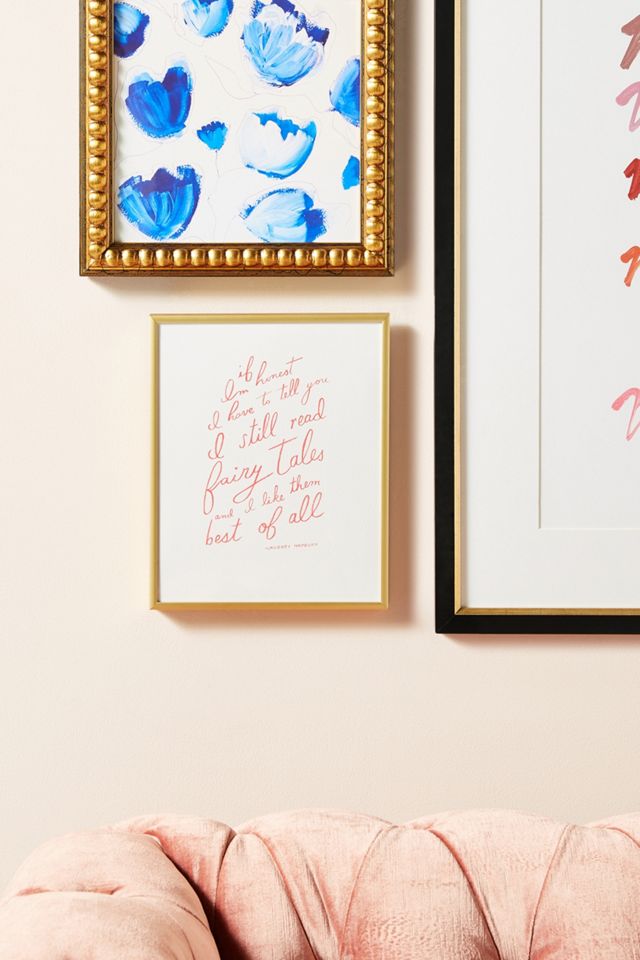 if
I'm honest
I have to tell you
I still read
fairy tales
and I like them
best of all
AUDREY HEPBURN